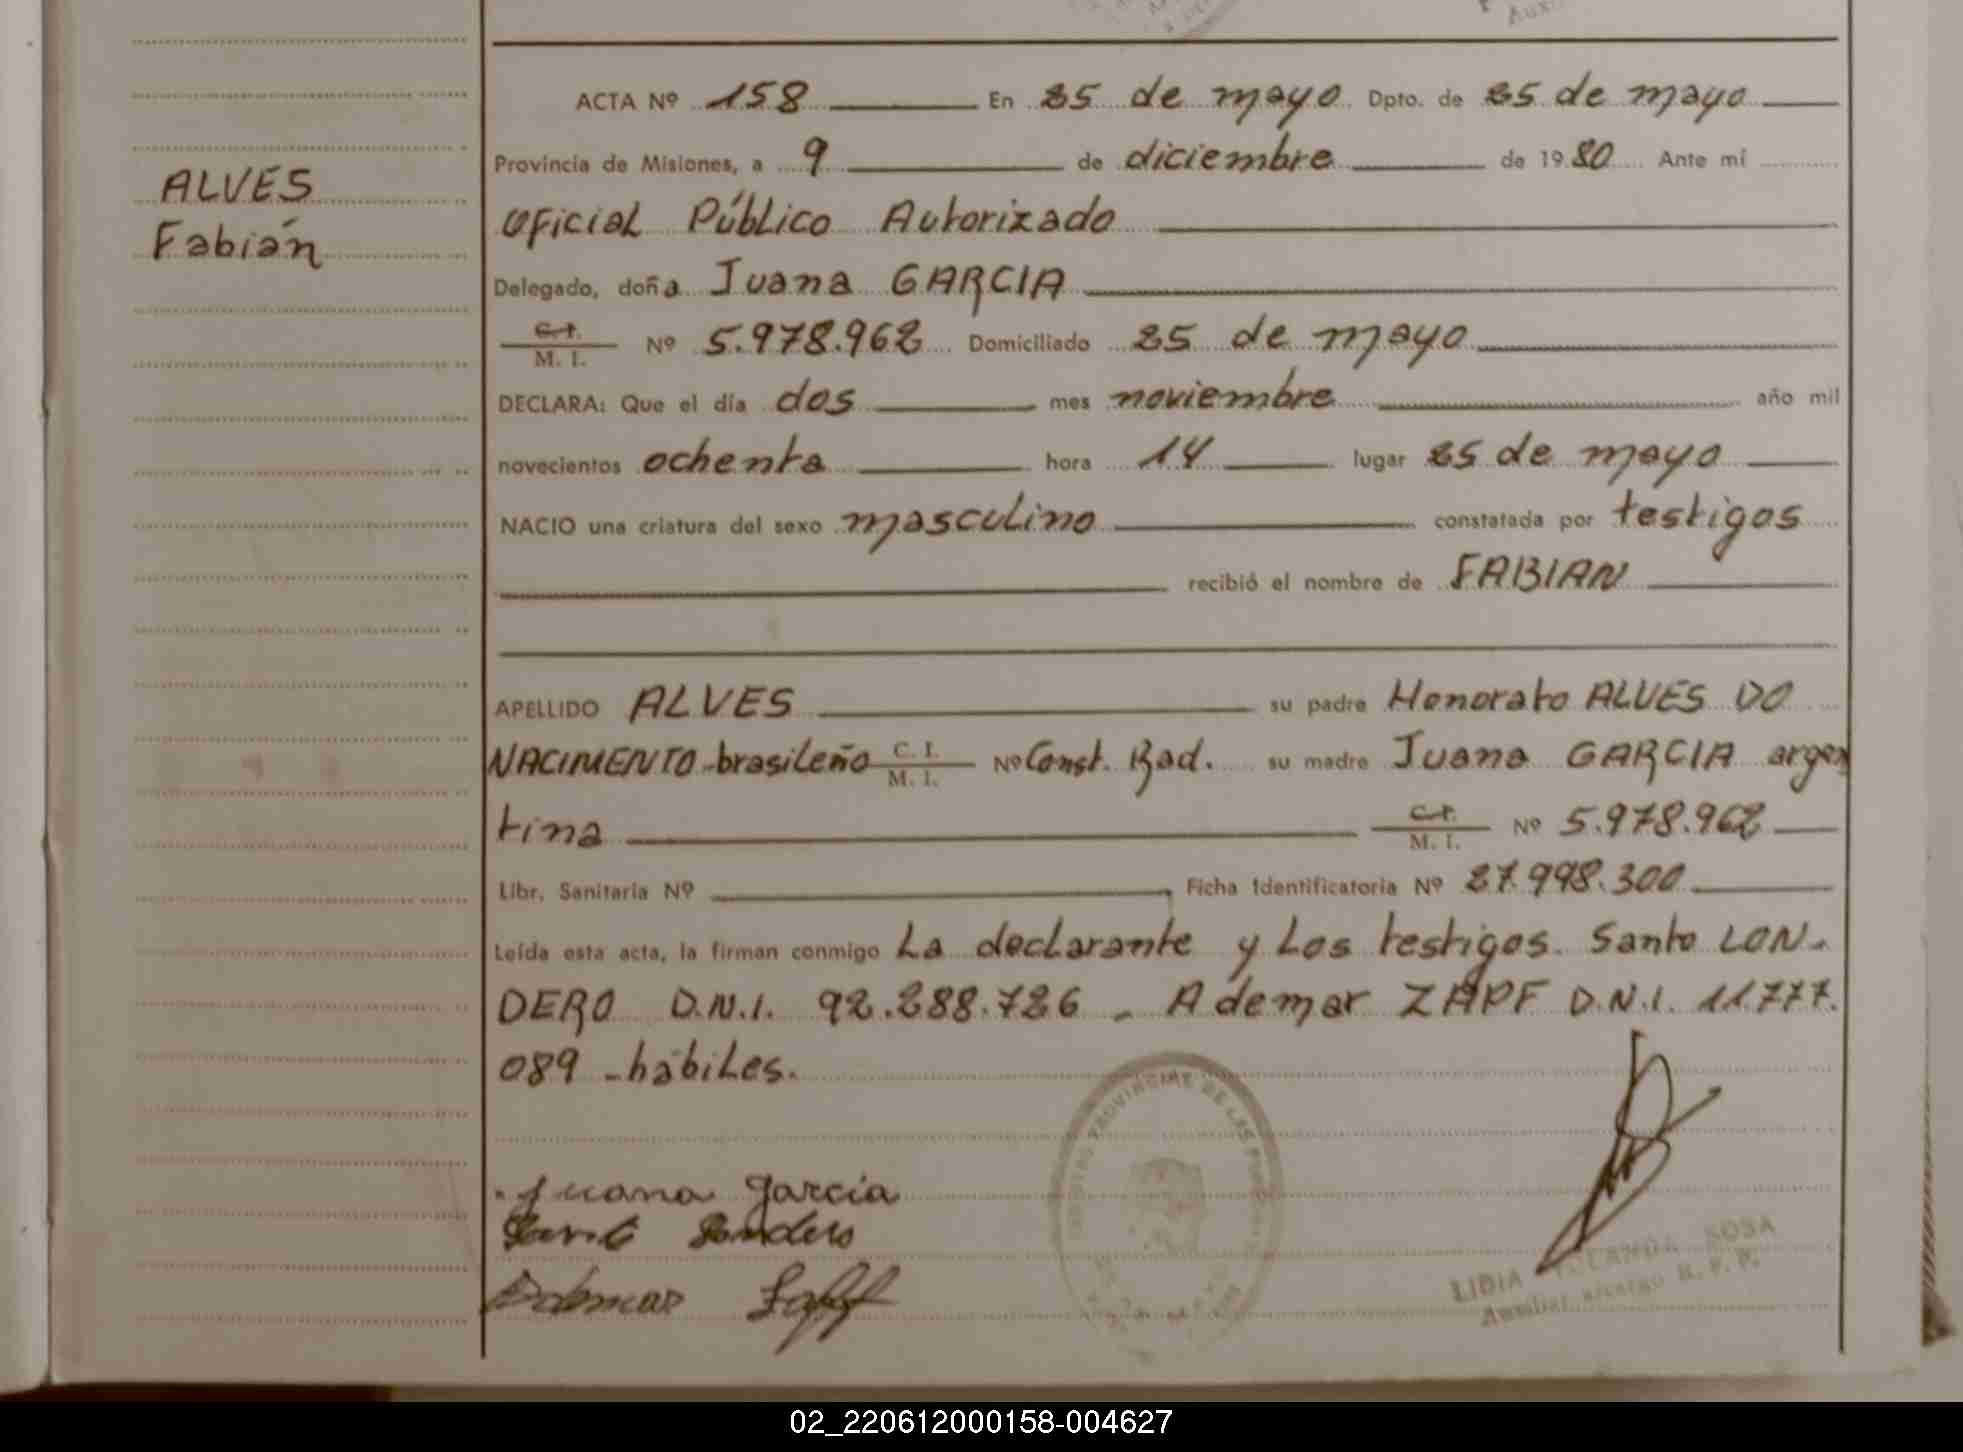 ACTA Nº 158 En 25 de mayo Dpto. de 25 de mayo
Provincia de Misiones, a 9 de diciembre de 1980 Ante mí
ALVES
Fabián
Oficial Público Autorizado
Delegado, doña Juana GARCIA
C.I.
M. I. Nº 5.978.962 Domiciliado 25 de mayo
DECLARA: Que el día dos mes noviembre año mil
novecientos ochenta hora 14 lugar 25 de mayo
NACIO una criatura del sexo masculino constatada por testigos
recibió el nombre de FABIAN
APELLIDO ALVES su padre Honorato ALVES DO
NACIMENTO-brasileño C. I. Nº Const. Rad. su madre Juana GARCIA argen
M. I.
tina C.I. Nº 5.978.962
M. I.
Libr, Sanitaria Nº Ficha Identificatoria Nº 27.998.300
Leída esta acta, la firman conmigo La declarante y Los testigos. Santo LON-
DERO D.N.I. 92.288.726 - Ademar ZAPF D.N.I. 11.777.
089 -hábiles.
Juana Garcia
LIDIA YOLANDA SOSA
Auxiliar R. P. P.
02_220612000158-004627